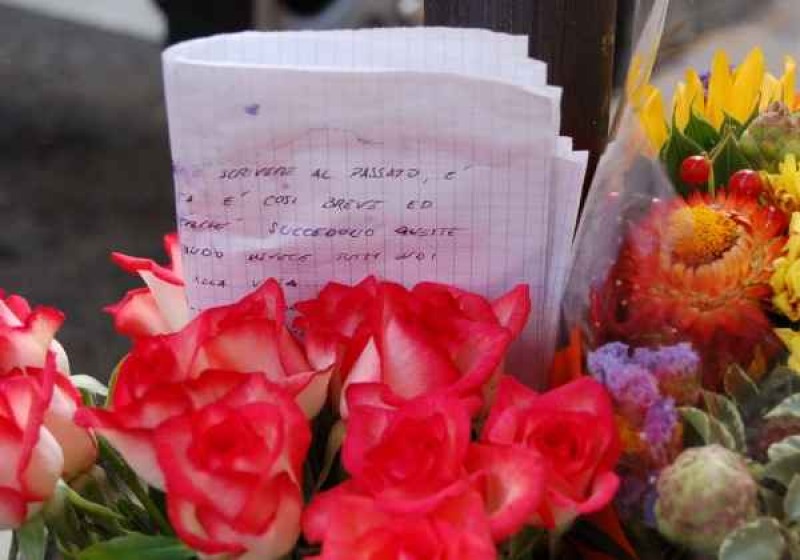 SCRIVERE AL PASSATO, E'
TA E' COSI BREVE ED
SUCCEDONO QUESTE
INVECE TUTTI NOI
ALLA VITA